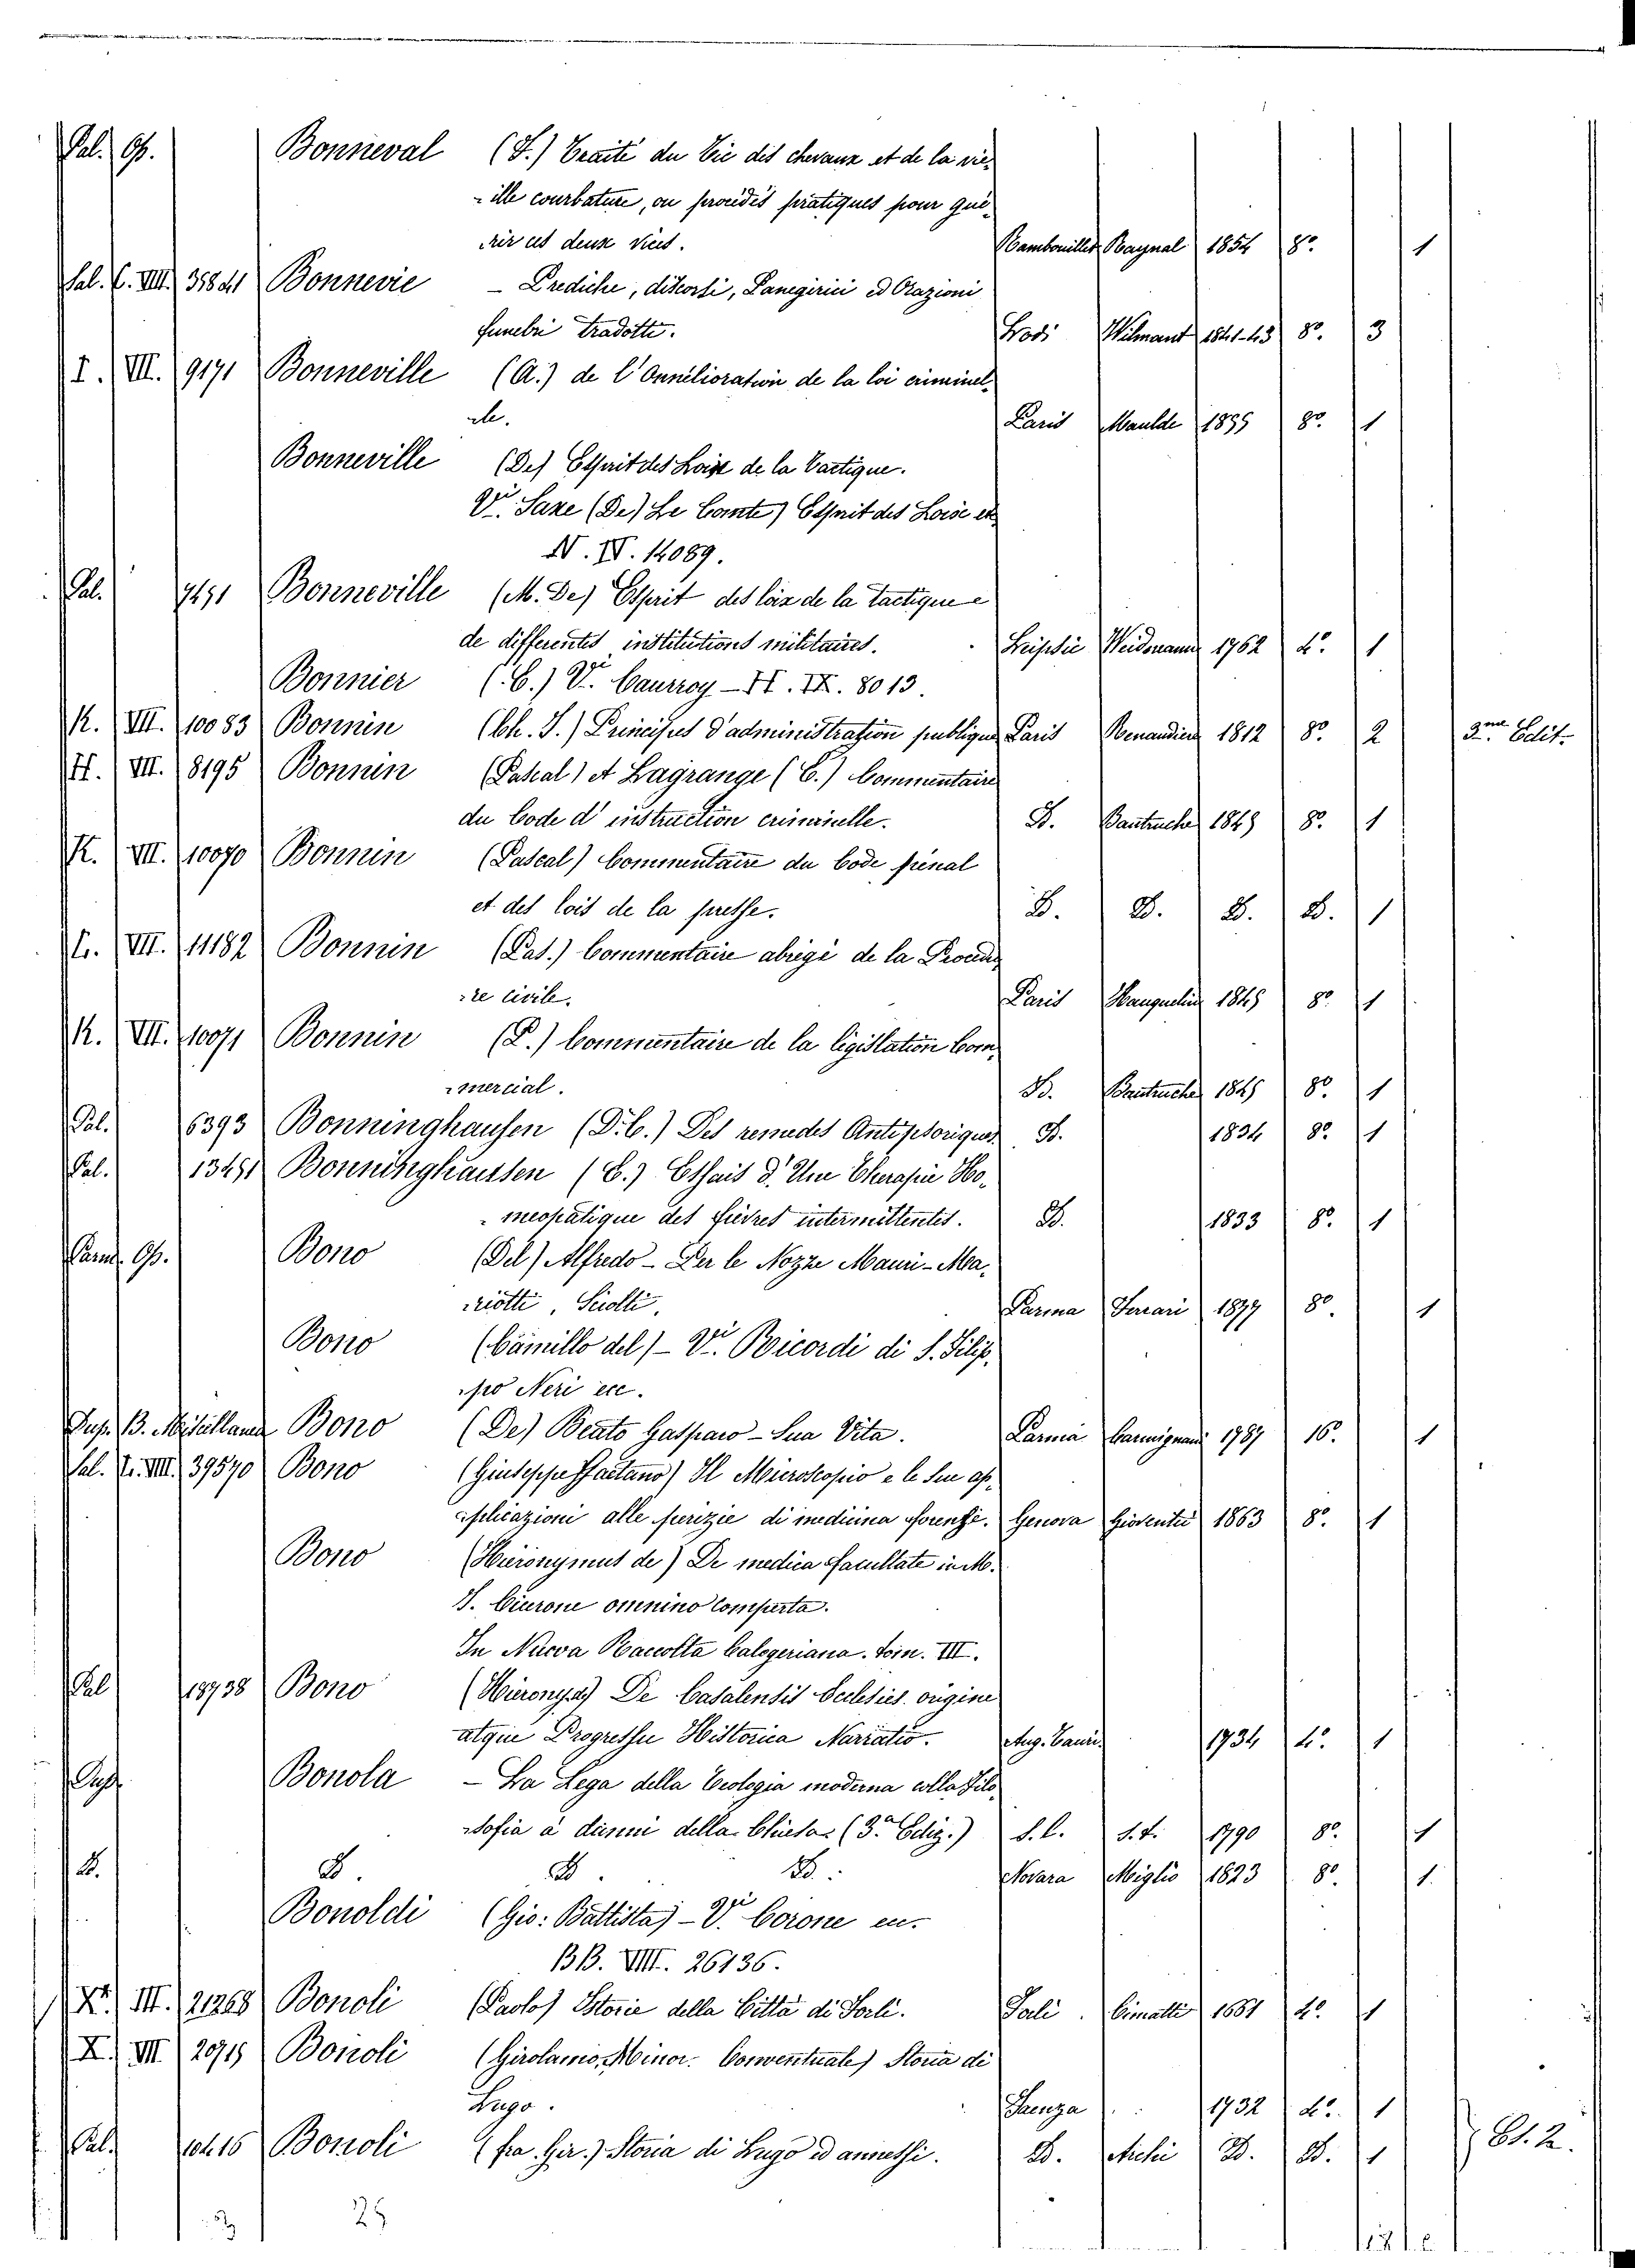 Pal. Op. Bonneval (F.) Traité du Tic des chevaux et de la vie-
-ille courbature, ou procédés pratiques pour gué-
-rir ces deux vices. Rambouillet Raynal 1854 8º. 1
Sal. C. VIII. 35841 Bonnevie - Prediche, discorsi, Panegirici ed Orazioni
funebri tradotte. Lodi Wilmant 1841-43 8º. 3
I. VII. 9171 Bonneville (A.) de l'Annélioration de la loi criminel-
-le. Paris Maulde 1855 8º. 1
Bonneville (De) Esprit des Loix de la Tactique.
Vi. Saxe (De) Le Comte) Esprit des Loise et
N. IV. 14089.
Pal. 7451 Bonneville (M. De) Esprit des loix de la tactique e
de differentes institutions militaires. Leipsic Weidmann 1762 4º. 1
Bonnier (E.) Vi. Caurroy - H. IX. 8013.
K. VII. 10083 Bonnin (Ch. J.) Principes d'administration publique Paris Renaudiere 1812 8º. 2 3me. Edit.
H. VII. 8195 Bonnin (Pascal) et Lagrange (E.) Commentaire
du Code d'instruction criminelle. D. Bautruche 1849 8º. 1
K. VII. 10070 Bonnin (Pascal) Commentaire du Code pénal
et des lois de la presse. D. D. D. D. 1
L. VII. 11182 Bonnin (Pas.) Commentaire abrégé de la Procedu-
-re Civile. Paris 1845 8º 1
K. VII. 10071 Bonnin (P.) Commentaire de la législation Com-
-mercial. D. Bautruche 1845 8º. 1
Pal. 6393 Bonninghausen (D. C.) Des remedes Antipsoriques D. 1834 8º. 1
Pal. 13451 Bonninghaussen (C.) Essais d'Une Therapie Ho-
-meopatique des fièvres intermittentes. D. 1833 8º. 1
Parm. Op. Bono (Del) Alfredo - Per le Nozze Mauri-Ma-
-riotti, Sciolti. Parma Ferrari 1877 8º. 1
Bono (Camillo del) - Vi. Ricordi di S. Filip-
-po Neri ecc.
Dup. B. Miscellanea Bono (De) Beato Gasparo - Sua Vita. Parma Carmignani 1787 16º. 1
Sal. L. VIII. 39570 Bono (Giuseppe Gaetano) Il Microscopio e le sue ap-
-plicazioni alle perizie di medicina forense. Genova Gioventù 1863 8º. 1
Bono (Hieronymus de) De medica facultate in M.
T. Cicerone omnino Comperta.
In Nuova Raccolta Calogeriana. tom. III.
Pal 18738 Bono (Hieronya) De Casalensis Ecclesies. origine
atque Progressu Historica Narratio. Aug. Tauri. 1734 4º. 1
Dup. Bonola - La Lega della Teologia moderna colla filo-
-sofia a danni della Chiesa (3a. Ediz.) S. l. S. t. 1790 8º. 1
D. D. D. D. Novara Miglio 1823 8º. 1
Bonoldi (Gio: Battista) - Vi. Corone en.
BB. VIII. 26136.
X. III. 21268 Bonoli (Paolo) Istorie della Città di Forlì. Forlì. Cimatti 1661 4º. 1
X. VII. 20715 Bonoli (Girolamo, Minor. Conventuale) Storia di
Lugo. Faenza 1732 4º. 1
Pal. 10416 Bonoli (fra. Gir.) Storia di Lugo ed annessi. D. Archi D. D. 1 Es. 2.
25